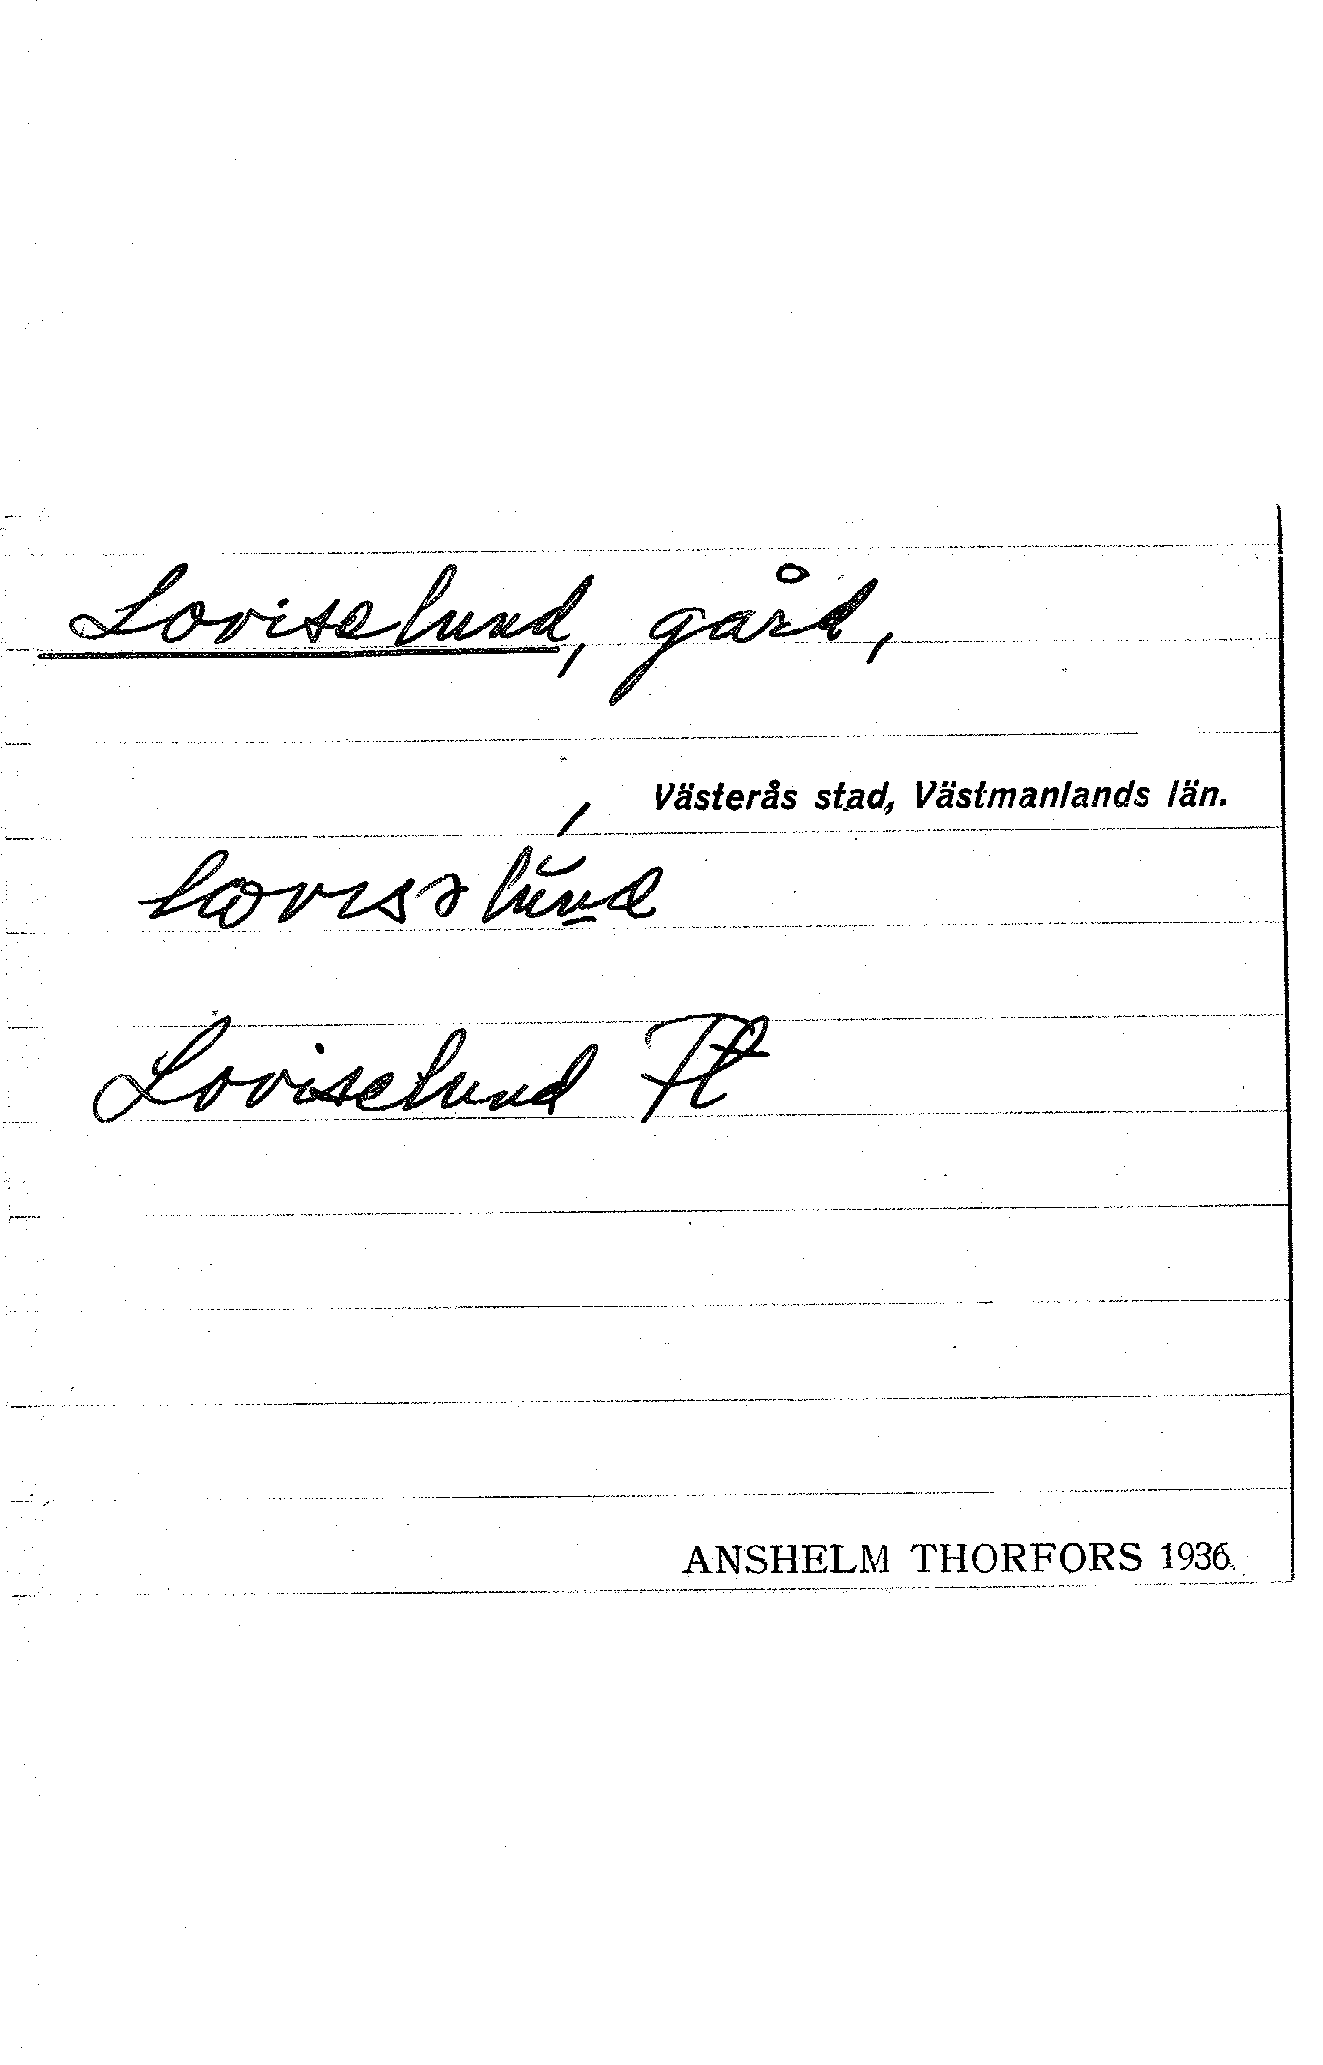 Loviselund, gård,
Västerås stad, Västmanlands län.
Loviselund Fl
ANSHELM THORFORS 1936.